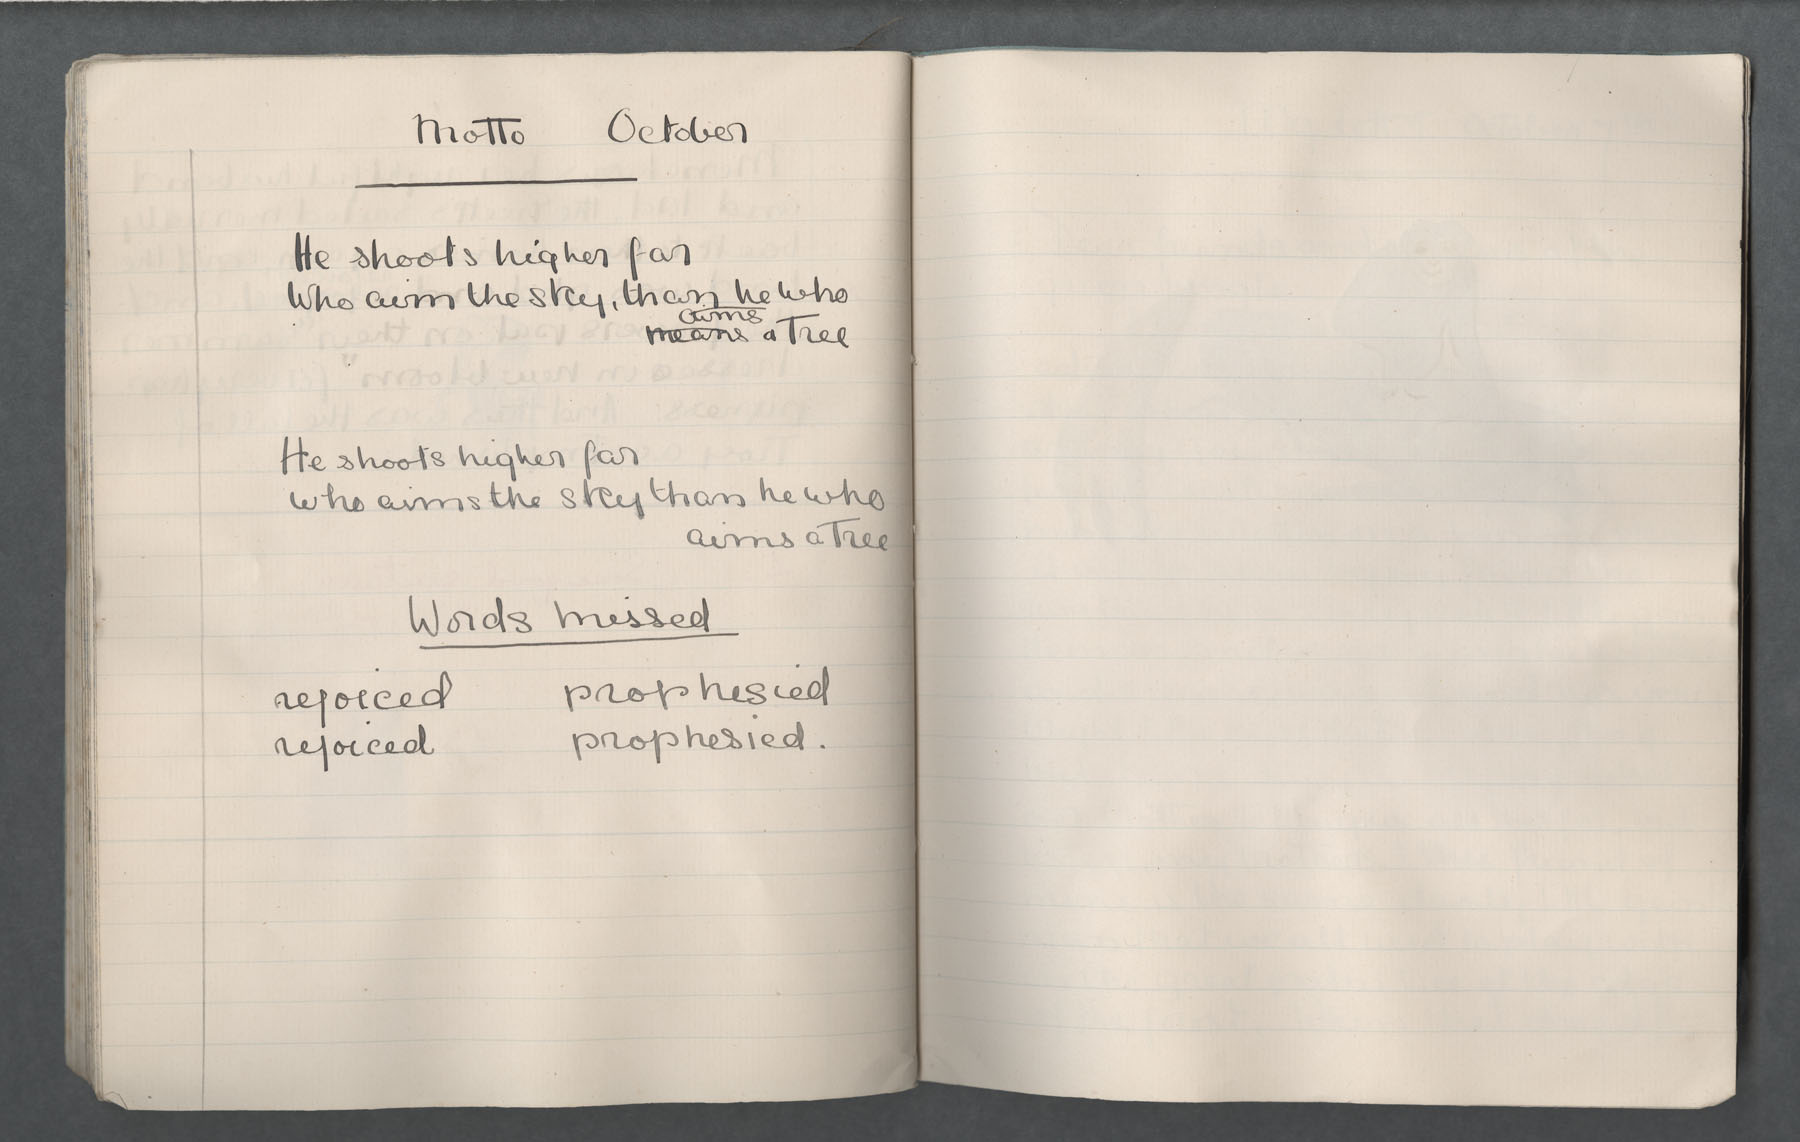 Motto October
He shoots higher far
Who aim the sky, than he who
aims
means a Tree
He shoots higher far
who aims the sky than he who
aims a Tree
Words missed
rejoiced prophesied
rejoiced prophesied.